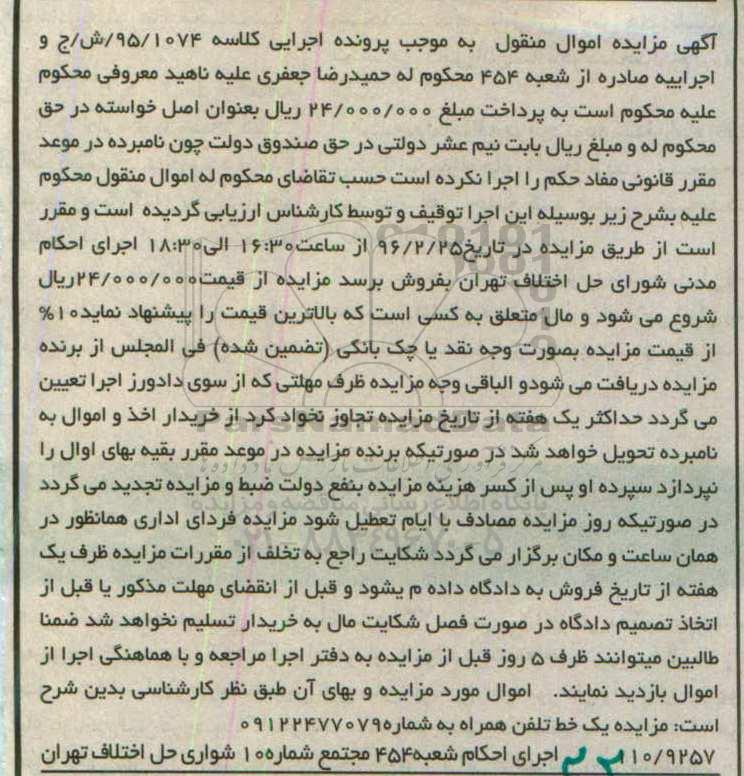 آگهی مزایده اموال منقول به موجب پرونده اجرایی کلاسه ۹۵/۱۰۷۴/ش/ج و
اجراییه صادره از شعبه ۴۵۴ محکوم له حمیدرضا جعفری علیه ناهید معروفی محکوم
علیه محکوم است به پرداخت مبلغ ۲۴/۰۰۰/۰۰۰ ریال بعنوان اصل خواسته در حق
محکوم له و مبلغ ریال بابت نیم عشر دولتی در حق صندوق دولت چون نامبرده در موعد
مقرر قانونی مفاد حکم را اجرا نکرده است حسب تقاضای محکوم له اموال منقول محکوم
علیه بشرح زیر بوسیله این اجرا توقیف و توسط کارشناس ارزیابی گردیده است و مقرر
است از طریق مزایده در تاریخ۹۶/۲/۲۵ از ساعت۱۶:۳۰ الی۱۸:۳۰ اجرای احکام
مدنی شورای حل اختلاف تهران بفروش برسد مزایده از قیمت۲۴/۰۰۰/۰۰۰ریال
شروع می شود و مال متعلق به کسی است که بالاترین قیمت را پیشنهاد نماید۱۰%
از قیمت مزایده بصورت وجه نقد یا چک بانکی (تضمین شده) فی المجلس از برنده
مزایده دریافت می شودو الباقی وجه مزایده ظرف مهلتی که از سوی دادورز اجرا تعیین
می گردد حداکثر یک هفته از تاریخ مزایده تجاوز نخواد کرد از خریدار اخذ و اموال به
نامبرده تحویل خواهد شد در صورتیکه برنده مزایده در موعد مقرر بقیه بهای اوال را
نپردازد سپرده او پس از کسر هزینه مزایده بنفع دولت ضبط و مزایده تجدید می گردد
در صورتیکه روز مزایده مصادف با ایام تعطیل شود مزایده فردای اداری همانظور در
همان ساعت و مکان برگزار می گردد شکایت راجع به تخلف از مقررات مزایده ظرف یک
هفته از تاریخ فروش به دادگاه داده م یشود و قبل از انقضای مهلت مذکور یا قبل از
اتخاذ تصمیم دادگاه در صورت فصل شکایت مال به خریدار تسلیم نخواهد شد ضمنا
طالبین میتوانند ظرف ۵ روز قبل از مزایده به دفتر اجرا مراجعه و با هماهنگی اجرا از
اموال بازدید نمایند. اموال مورد مزایده و بهای آن طبق نظر کارشناسی بدین شرح
است: مزایده یک خط تلفن همراه به شماره۰۹۱۲۲۴۷۷۰۷۹
۱۱۰/۹۲۵۷ اجرای احکام شعبه۴۵۴ مجتمع شماره۱۰ شواری حل اختلاف تهران
ParsNamadData